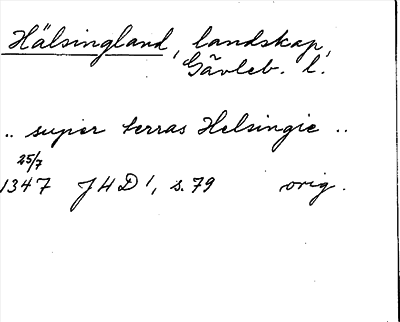 Hälsingland, landskap,
Gävleb. l.
.. super terras Helsingie ..
25/7
1347 JHD 1, s. 79 orig.